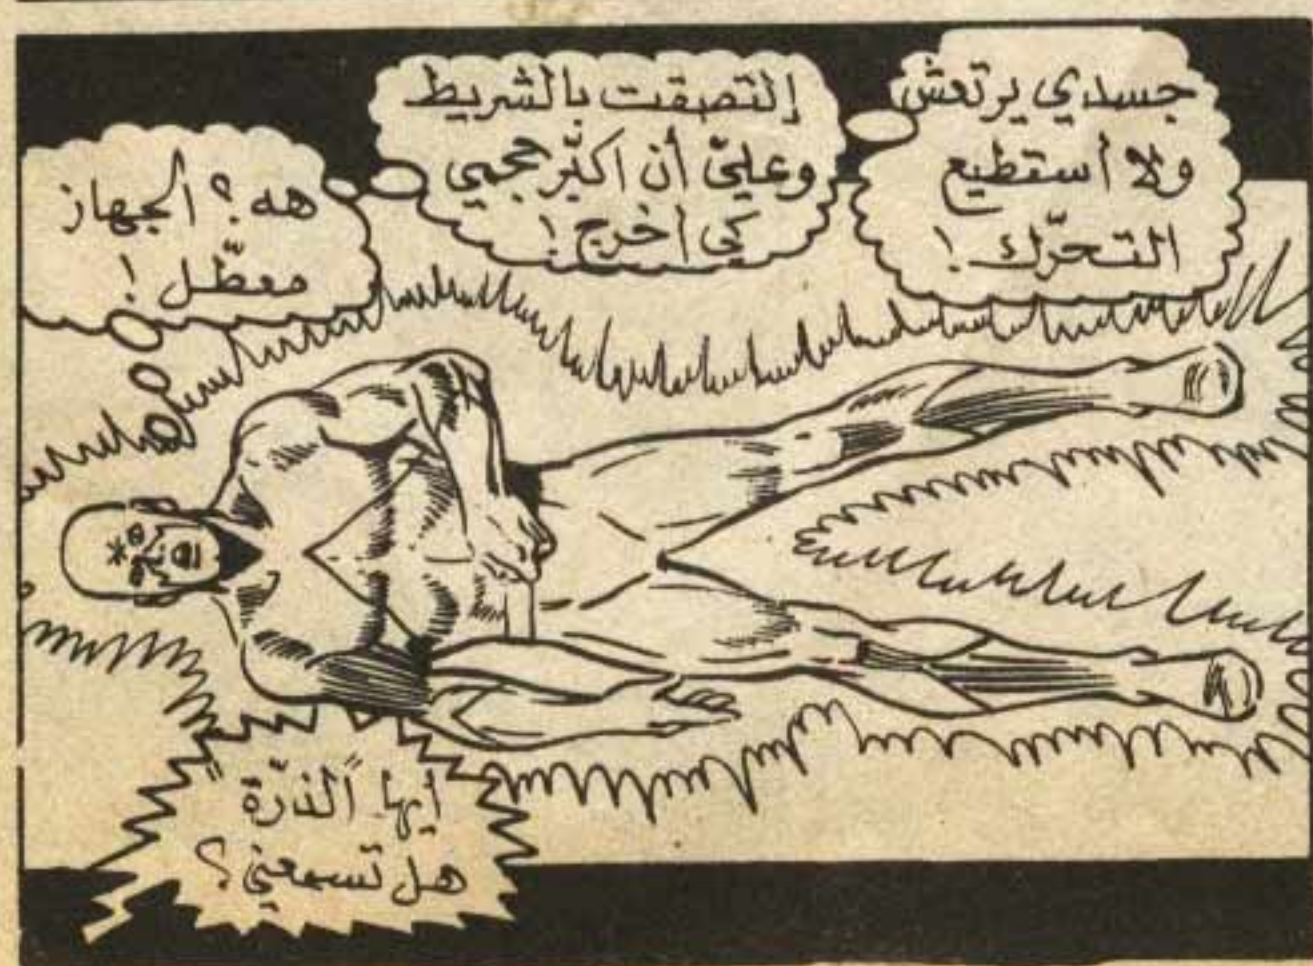 جسدي يرتعش
ولا أستطيع
التحرّك !
إلتصقت بالشريط
وعليّ أن أكبّر حجمي
كي أخرج !
هه؟ الجهاز
معطّل !
أيها "الذرّة"
هل تسمعني؟